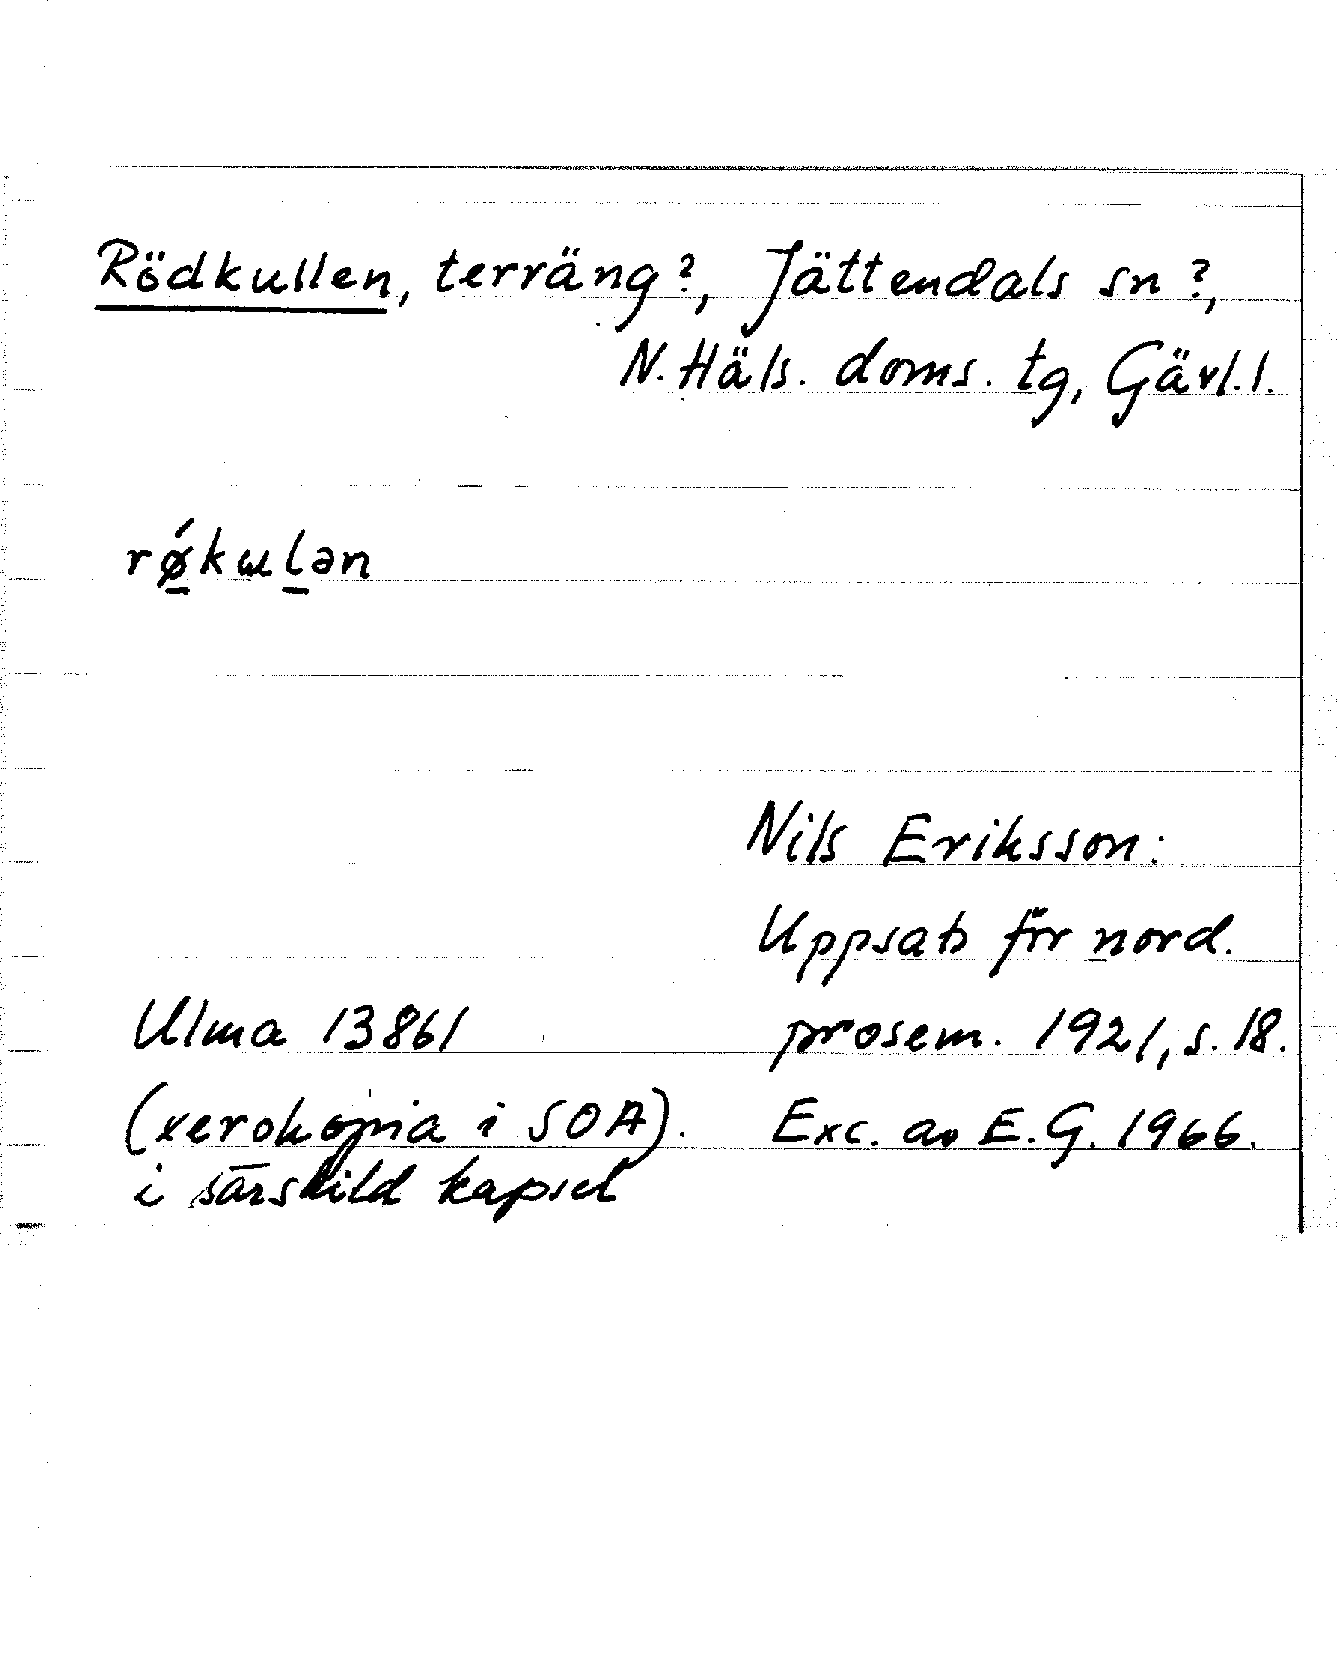 Rödkullen, terräng?, Jättendals sn?,
N. Häls. doms. tg, Gävl. l.
rǿ̱kɯḻən
Nils Eriksson:
Uppsats för nord.
Ulma 13861 prosem. 1921, s. 18.
(xerokopia i SOA). Exc. av E. G. 1966.
i särskild kapsel